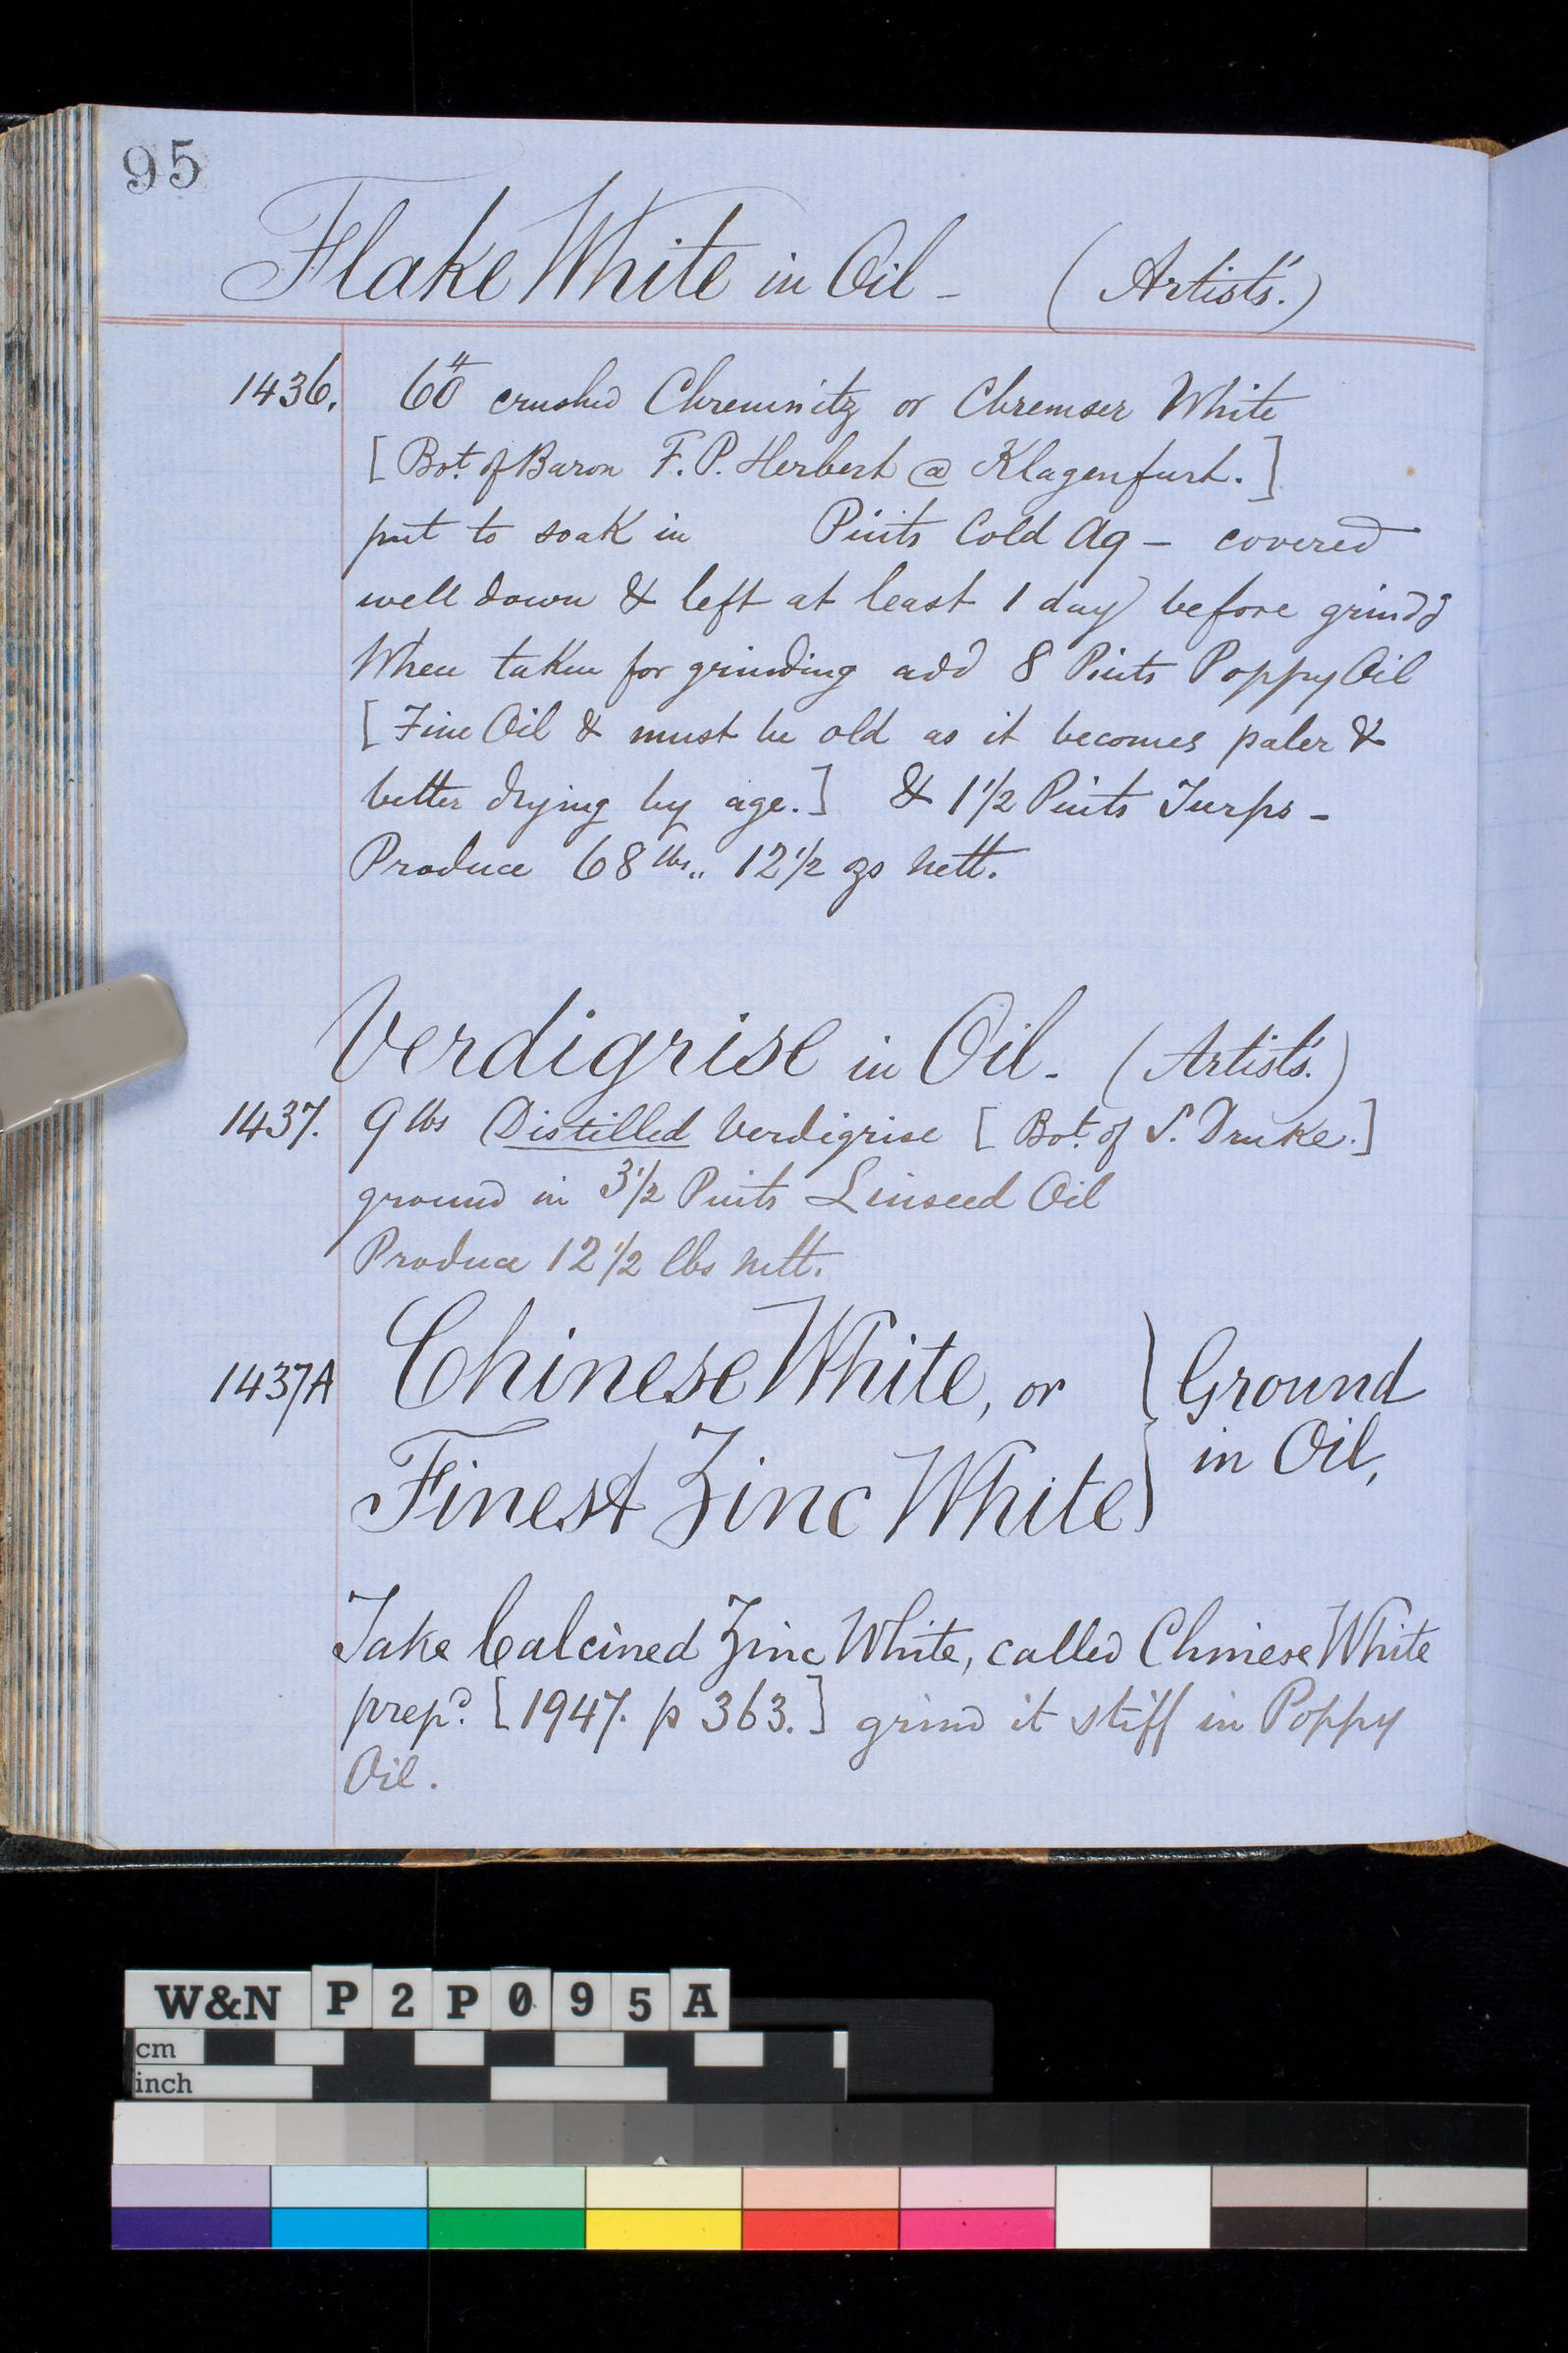 95
Flake White in Oil - (Artists'.)
1436. 60# crushed Chremnitz or Chremser White
[Bot. of Baron F. P. Herbert @ Klagenfurt.]
put to soak in Pints Cold Aq - covered
well down & left at least 1 day before grindg
When taken for grinding add 8 Pints Poppy Oil
[Fine Oil & must be old as it becomes paler &
better drying by age.] & 1 1/2 Pints Turps -
Produce 68 lbs.. 12 1/2 ozs nett.
Verdigrise in Oil - (Artists'.)
1437. 9 lbs Distilled Verdigrise [Bot. of S. Druke.]
ground in 3 1/2 Pints Linseed Oil
Produce 12 1/2 lbs nett.
1437A Chinese White, or } Ground
Finest Zinc White } in Oil,
Take Calcined Zinc White, called Chinese White
prepd. [1947. p 363.] grind it stiff in Poppy
Oil.
W&N P2P095A
cm
inch